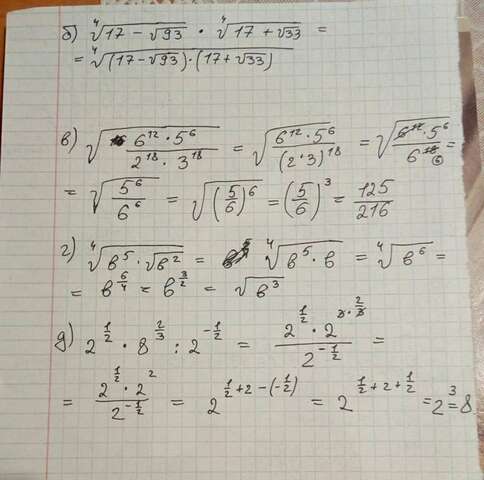 б) ⁴√(17 − √93) · ⁴√(17 + √33) =
= ⁴√((17 − √93) · (17 + √33))
в) √((6¹² · 5⁶)/(2¹⁸ · 3¹⁸)) = √((6¹² · 5⁶)/(2 · 3)¹⁸) = √((6¹² · 5⁶)/6¹⁸ ⁶) =
= √(5⁶/6⁶) = √((5/6)⁶) = (5/6)³ = 125/216
г) ⁴√(в⁵ · √в²) = ⁴√(в⁵ · в) = ⁴√(в⁶) =
= в^(6/4) = в^(3/2) = √в³
д) 2^(1/2) · 8^(2/3) : 2^(−1/2) = (2^(1/2) · 2^(3 · 2/3))/2^(−1/2) =
= (2^(1/2) · 2²)/2^(−1/2) = 2^(1/2 + 2 − (−1/2)) = 2^(1/2 + 2 + 1/2) = 2³ = 8